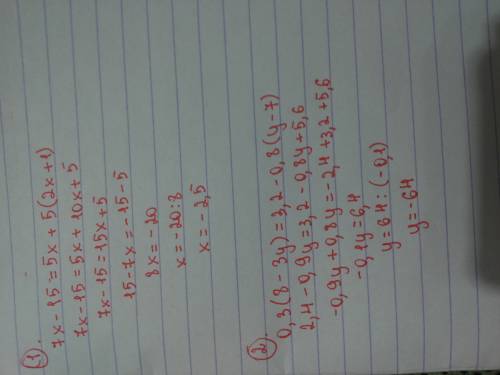 1.
7x-15=5x+5(2x+1)
7x-15=5x+10x+5
7x-15=15x+5
15-7x=-15-5
8x=-20
x=-20:8
x=-2,5
2.
0,3(8-3y)=3,2-0,8(y-7)
2,4-0,9y=3,2-0,8y+5,6
-0,9y+0,8y=-2,4+3,2+5,6
-0,1y=6,4
y=64:(-0,1)
y=-64